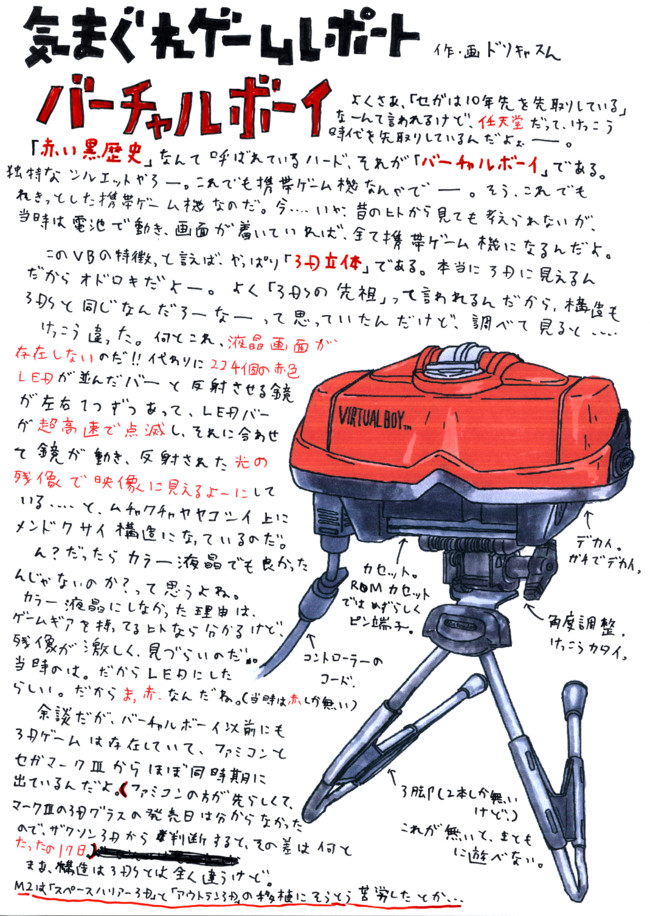 気まぐれゲームレポート
作・画 ドリキャスん
バーチャルボーイ
よくさぁ、「セガは10年先を先取りしている」
なーんて言われるけど、任天堂だって、けっこう
時代を先取りしているんだよぉーー。
「赤い黒歴史」なんて呼ばれているハード、それが「バーチャルボーイ」である。
独特なシルエットやろー。これでも携帯ゲーム機なんやでー。そう、これでも
れきっとした携帯ゲーム機なのだ。今‥‥いや、昔のヒトから見ても考えられないが、
当時は電池で動き、画面が着いていれば、全て携帯ゲーム機になるんだよ。
このVBの特徴、と言えば、やっぱり「3D立体」である。本当に3Dに見えるん
だからオドロキだよー。よく「3DSの先祖」って言われるんだから、構造も
3DSと同じなんだろーなーって思っていたんだけど、調べて見ると‥‥
けっこう違った。何とこれ、液晶画面が
存在しないのだ!!代わりに224個の赤色
LEDが並んだバーと反射させる鏡
が左右1つずつあって、LEDバー
が超高速で点滅し、それに合わせ
て鏡が動き、反射された光の
残像で映像に見えるよーにして
いる‥‥と、ムチャクチャヤヤコシイ上に
メンドクサイ構造になっているのだ。
ん?だったらカラー液晶でも良かった
んじゃないのか?って思うよね。
カラー液晶にしなかった理由は、
ゲームギアを持ってるヒトなら分かるけど、
残像が激しく、見づらいのだ。
当時のは。だからLEDにした
らしい。だからまっ赤なんだね。(当時は赤しか無い)
余談だが、バーチャルボーイ以前にも
3Dゲームは存在していて、ファミコンと
セガマークⅢからほぼ同時期に
出ているんだよ。(ファミコンの方が先らしくて、
マークⅢの3Dグラスの発売日は分からなかった
ので、ザクソン3Dから判断すると、その差は何と
たったの17日)
まぁ、構造は3DSとは全く違うけど。
M2は「スペースハリアー3D」と「アウトラン3D」の移植にそうとう苦労したとか‥‥
VIRTUAL BOY™
デカイ。
ガチでデカイ。
カセット。
ROMカセット
ではめずらしく
ピン端子。
角度調整。
けっこうカタイ。
コントローラーの
コード。
3脚(2本しか無い
けど。)
これが無いと、まとも
に遊べない。